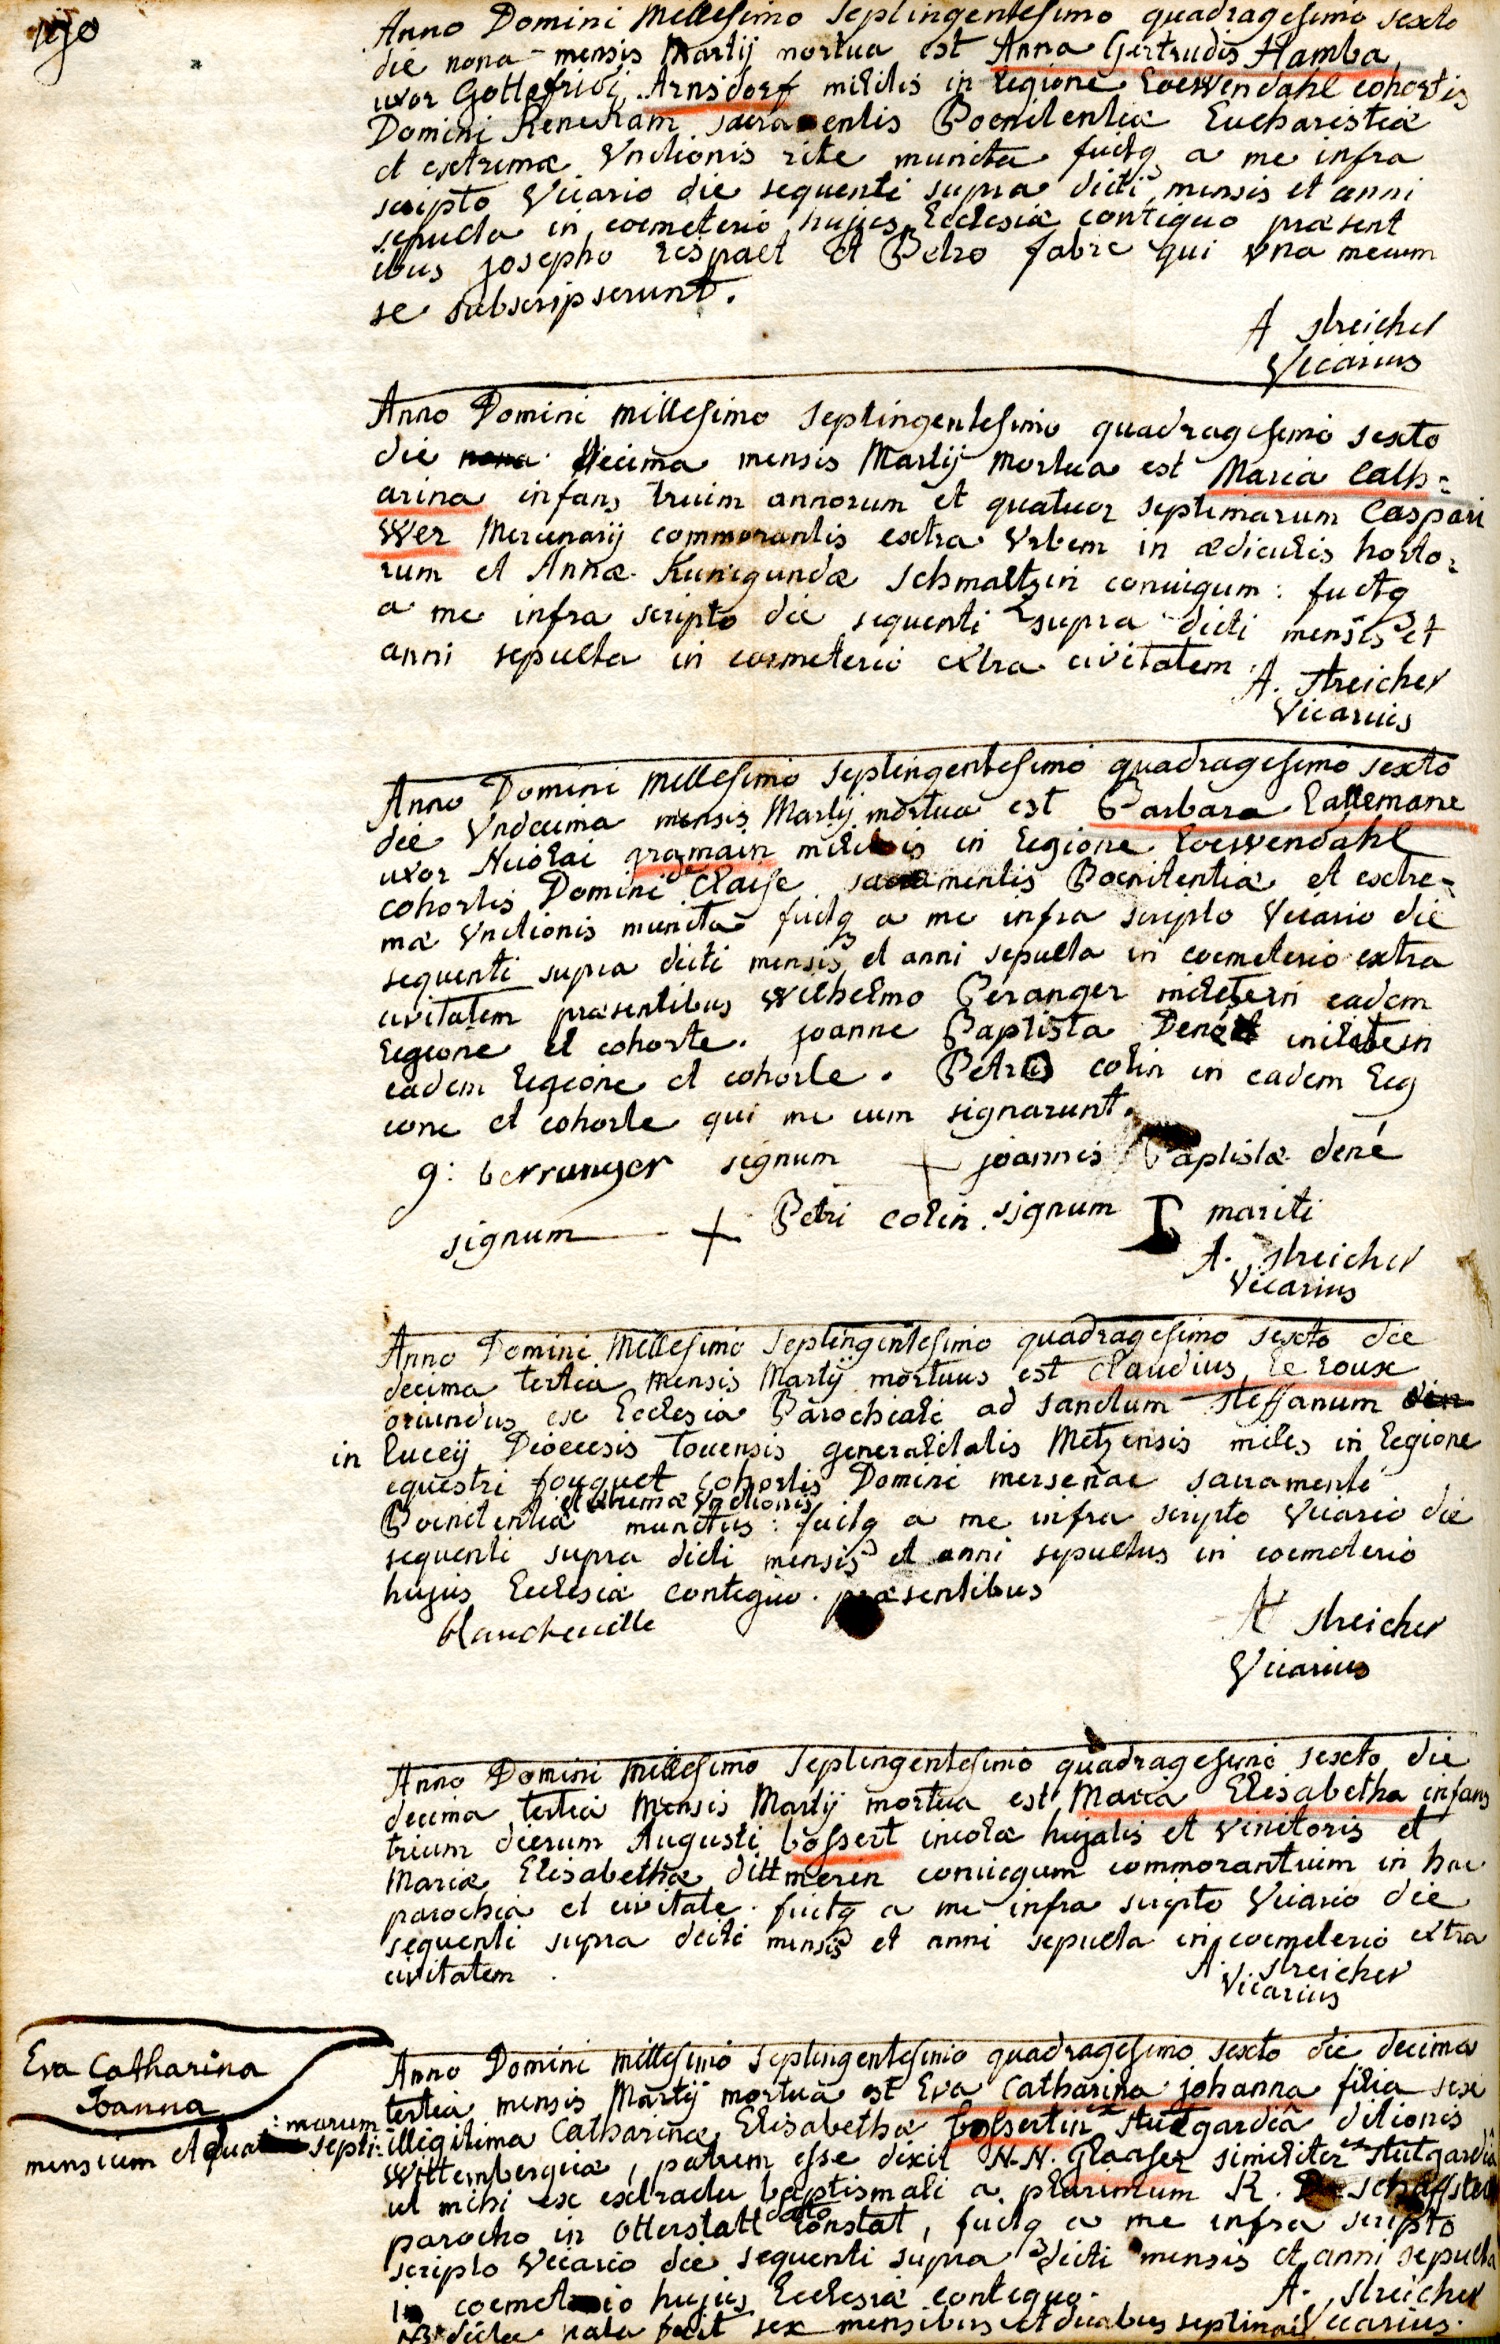 Anno Domini Millesimo Septingentesimo quadragesimo sexto
die nona mensis Martij mortua est Anna Gertrudis Hamba
uxor Gottefridi Arnsdorf militis in legione Loewendahl cohortis
Domini sacramentis Poenitentiæ Eucharistiæ
et extremæ Vnctionis rite munita fuitq a me infra
scripto Vicario die sequenti supra dicti mensis et anni
sepulta in coemeterio hujus Ecclesiæ contiguo præsent
ibus josepho respaet et Petro fabre qui vna mecum
se subscripserunt.
A Streicher
Vicarius
Anno Domini Millesimo Septingentesimo quadragesimo sexto
die nona decima mensis Martij mortua est Maria Cath=
arina infans trium annorum et quatuor septimarum Caspari
Wer Mercenarij commorantis extra Vrbem in ædiculis horto=
rum et Annæ Kunigundæ Schmaltzin coniugum : fuitq
a me infra scripto die sequenti supra dicti mensis et
anni sepulta in coemeterio extra civitatem .
A. Streicher
Vicarius
Anno Domini Millesimo Septingentesimo quadragesimo sexto
die Vndecima mensis Martij mortua est Barbara Lallemane
uxor Nicolai gramain militis in legione Loewendahl
cohortis Domini de Claise sacramentis Poenitentiæ et extre=
mæ Vnctionis munita fuitq a me infra scripto Vicario die
sequenti supra dicti mensis et anni sepulta in coemeterio extra
civitatem præsentibus Wilhelmo Beranger militem eadem
legione et cohorte . joanne Baptista Dené militem
eadem legione et cohorte . Petro colin in eadem leg
ione et cohorte qui me cum signarunt.
g: berranger signum + joannis Baptistæ dené
signum + Petri colin . signum mariti
A. Streicher
Vicarius
Anno Domini Millesimo Septingentesimo quadragesimo sexto die
decima tertia mensis Martij mortuus est Claudius Le roux
oriundus ex Ecclesia Parochiali ad sanctum steffanum
in Luceij Dioecesis Touensis generalitatis Metzensis miles in legione
equestri fouquet cohortis Domini mersenac sacramenti
Poenitentiæ et extremæ Vnctionis munitus : fuitq a me infra scripto Vicario die
sequenti supra dicti mensis et anni sepultus in coemeterio
hujus Ecclesiæ contiguo . præsentibus
blancheville
A Streicher
Vicarius
Anno Domini Millesimo Septingentesimo quadragesimo sexto die
decima tertia Mensis Martij mortua est Maria Elisabetha infans
trium dierum Augusti bossert incolæ hujatis et vinitoris et
Mariæ Elisabethæ dittmerin coniugum commorantium in hac
parochia et civitate . fuitq a me infra scripto Vicario die
sequenti supra dicti mensis et anni sepulta in coemeterio extra
civitatem .
A. Streicher
Vicarius
Eva Catharina
Joanna
Anno Domini Millesimo Septingentesimo quadragesimo sexto die decima
tertia mensis Martij mortua est Eva Catharina johanna filia sex
mensium et quatuor septi:marum illigitima Catharinæ Elisabethæ bossertin ex stutgardia ditionis
Wittembergiæ , patrem esse dixit N.N. Glaaser similiter ex stutgardia
ut mihi ex extractu baptismali a plurimum R. D.
parocho in Otterstatt dato constat , fuitq a me infra scripto
scripto Vicario die sequenti supra dicti mensis et anni sepulta
in coemeterio hujus Ecclesiæ contiguo .
A. Streicher
Vicarius.
NB dicta nata fuit sex mensibus et duabus septimanis